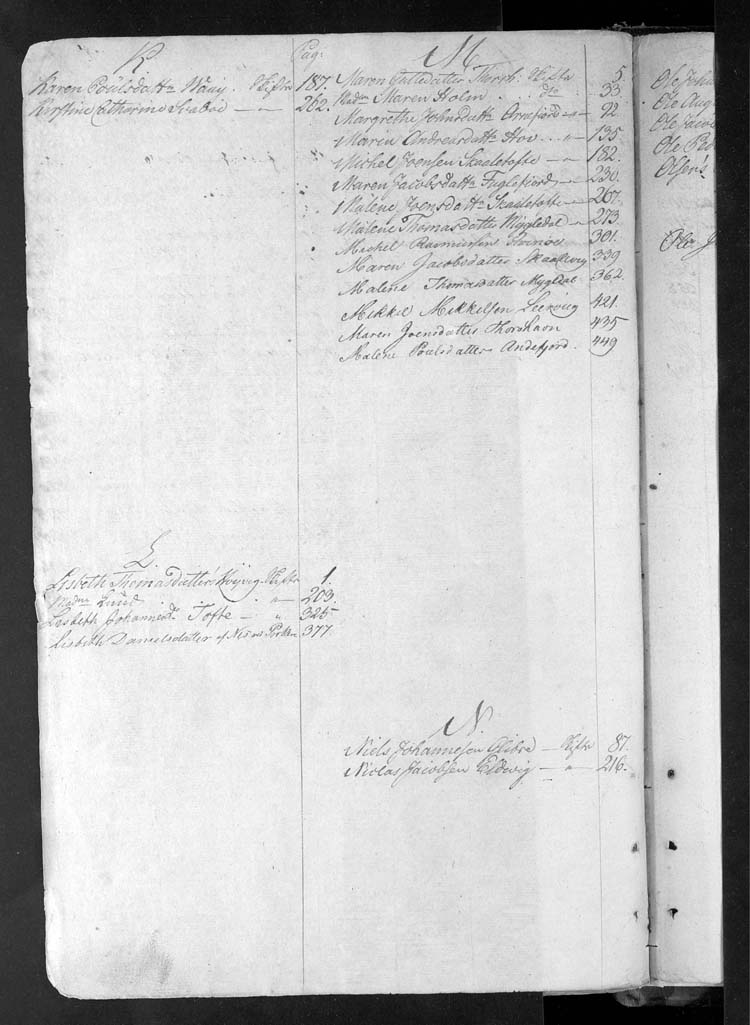 K
Pag:
Karen Poulsdattr Waaij Skifte 187.
Kirstine Cathrine Svaboe — „ — 262.
M
Maren Dattr Thorsh: Skifte 5.
Madm Maren Holm do 33
Margrethe Johnsdattr Ørrefjord — „ — 92
Maren Andreasdattr Hov — „ — 135.
Michel Joensen Skaaletofte — „ — 182.
Maren Jacobsdattr Fuglefjord — „ — 230.
Malene Joensdattr Skaaletofte — „ — 267.
Malene Thomasdatter Miggledal — „ — 273.
Michel Rasmussen 301.
Maren Jacobsdatter 339
Malene Thomasdatter Mygledal 362.
Mikkel Mikkelsen Leervig 421.
Maren Joensdatter Thorshavn 435
Malene Poulsdatter Andefjord. 449
L
Lisbeth Thomasdatter Qvivig Skifte 1.
Madm Lund — „ — 203.
Lisbeth Johannesd. Tofte — „ 325
Lisbeth Danielsdatter af Nes ved Porken 377
N.
Niels Johannesen Glibre — Skifte 87.
Nicolas Jacobsen Eldevig — „ — 216.
Ole
Ole Aug
Ole Jacob
Ole
Olsen's
Ole J